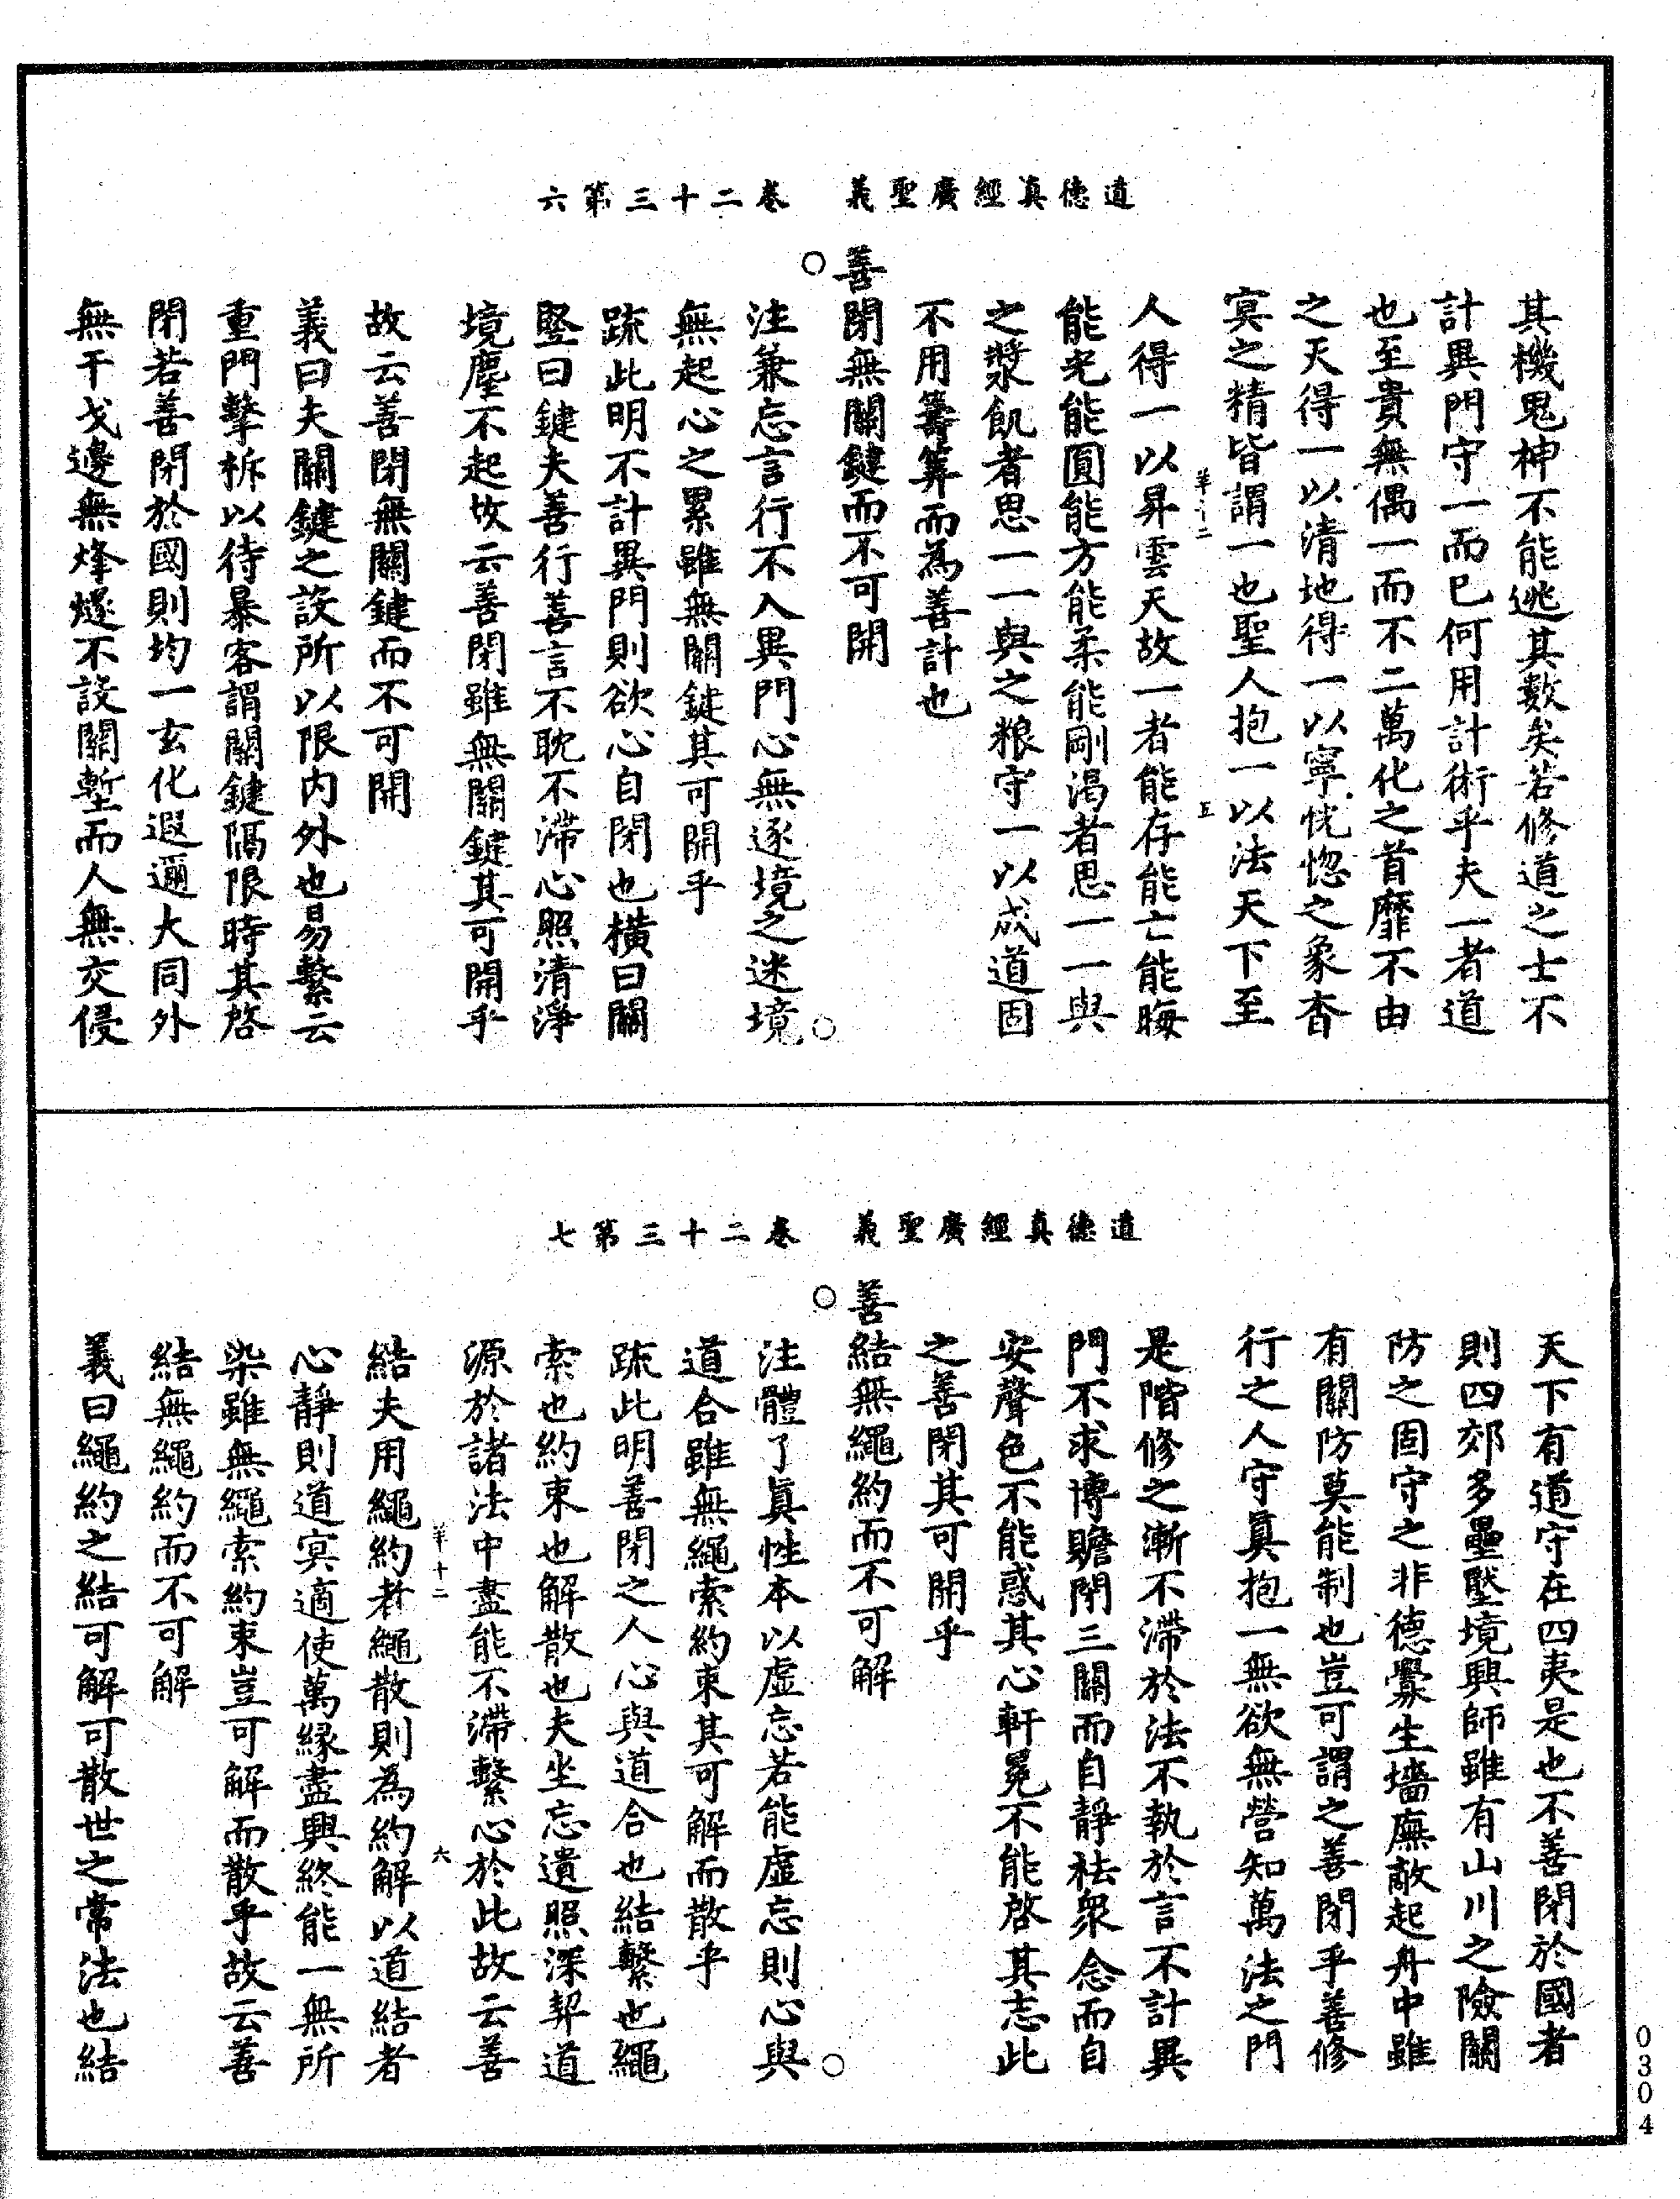 道德真經廣聖義　卷二十三第六
其機鬼神不能逃其數矣若修道之士不
計異門守一而已何用計術乎夫一者道
也至貴無偶一而不二萬化之首靡不由
之天得一以清地得一以寧恍惚之象杳
冥之精皆謂一也聖人抱一以法天下至
羊十二　五
人得一以昇雲天故一者能存能亡能晦
能光能圓能方能柔能剛渴者思一一與
之漿飢者思一一與之粮守一以成道固
不用籌筭而為善計也
善閉無關鍵而不可開
注兼忘言行不入異門心無逐境之迷境
無起心之累雖無關鍵其可開乎
疏此明不計異門則欲心自閉也橫曰關
竪曰鍵夫善行善言不耽不滯心照清淨
境塵不起故云善閉雖無關鍵其可開乎
故云善閉無關鍵而不可開
義曰夫關鍵之設所以限內外也易繫云
重門擊柝以待暴客謂關鍵隔限時其啓
閉若善閉於國則均一玄化遐邇大同外
無干戈邊無烽燧不設關塹而人無交侵
道德真經廣聖義　卷二十三第七
天下有道守在四夷是也不善閉於國者
則四郊多壘壓境興師雖有山川之險關
防之固守之非德釁生墻廡敵起舟中雖
有關防莫能制也豈可謂之善閉乎善修
行之人守真抱一無欲無營知萬法之門
是階修之漸不滯於法不執於言不計異
門不求博贍閉三關而自靜袪衆念而自
安聲色不能惑其心軒冕不能啓其志此
之善閉其可開乎
善結無繩約而不可解
注體了真性本以虛忘若能虛忘則心與
道合雖無繩索約束其可解而散乎
疏此明善閉之人心與道合也結繫也繩
索也約束也解散也夫坐忘遺照深契道
源於諸法中盡能不滯繫心於此故云善
羊十二　六
結夫用繩約者繩散則為約解以道結者
心靜則道冥適使萬緣盡興終能一無所
染雖無繩索約束豈可解而散乎故云善
結無繩約而不可解
義曰繩約之結可解可散世之常法也結
0304